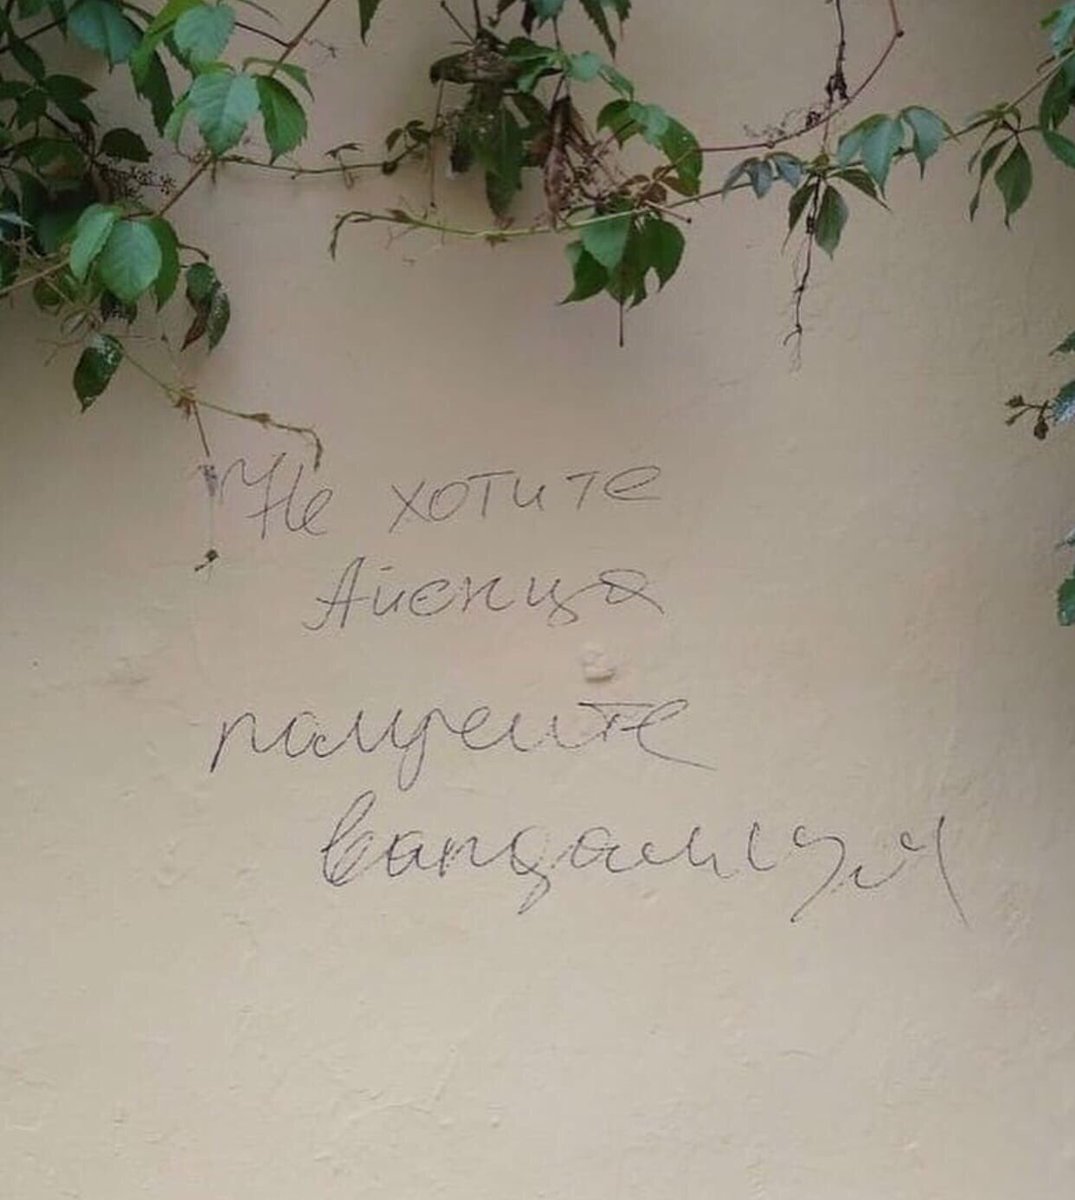 Не хотите
Айенца
получите
вандализм